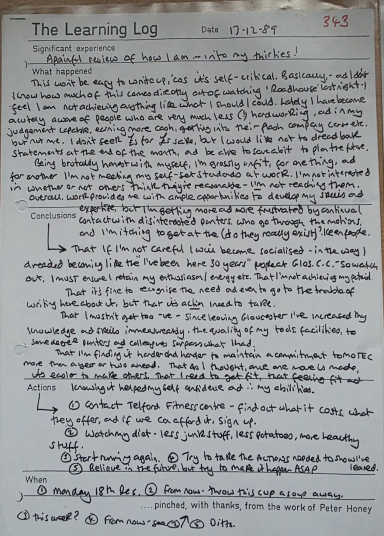 343
The Learning Log Date 17-12-89
Significant experience
A painful review of how I am - into my thirties!
What happened
This won't be easy to write up, 'cos it's self-critical. Basically - and I don't
know how much of this comes directly out of watching 'Roadhouse' last night - I
feel I am not achieving anything like what I should/could. Lately I have become
acutely aware of people who are very much less (1) hardworking, and in my
judgement capable, earning more cash, getting into their posh company cars etc.
but not me. I don't feel £s for £s sake, but I would like not to dread bank
statements at the end of the month, and be able to save a bit to plan the future.
Being brutally honest with myself, I'm grossly unfit, for one thing, and
for another I'm not meeting my self-set standards at work. I'm not interested
in whether or not others think they're reasonable - I'm not reaching them.
Overall work provides me with ample opportunities to develop my skills and
expertise, but I'm getting more and more frustrated by continual
Conclusions contact with disinterested punters, who go through the motions,
and I'm itching to get at the (do they really exist?) keen people.
That if I'm not careful I would become socialised - in the way I
dreaded becoming like the "I've been here 30 years" Glos.C.C. So watch
out, I must ensure I retain my enthusiasm/energy etc. That I'm not achieving my
That it's fine to recognise the need and even to go to the trouble of
writing here about it, but that its action I need to take.
That I mustn't get too -ve - Since leaving Gloucester I've increased my
knowledge and skills immeasurably. the quality of my tools, facilities, to
some punters and colleagues surpass what I had.
That I'm finding it harder and harder to maintain a commitment to
more than a year or two ahead. That as I thought, once one move is made,
its easier to make others. That I need to get fit, that feeling fit and
Actions knowing it helped my self confidence and ∴ my abilities.
① Contact Telford Fitness centre - find out what it costs, what
they offer, and if we can afford it. Sign up.
② Watch my diet - less junk stuff, less potatoes, more healthy
stuff.
③ Start running again. ④ Try to take the ACTIONS needed to show I've
⑤ Believe in the future, but try to make it happen ASAP learned.
When
① Monday 18th Dec. ② From now - throw this cup a soup away.
....pinched, with thanks, from the work of Peter Honey
③ this week? ④ From now - see ③ ↑ ⑤ Ditto.